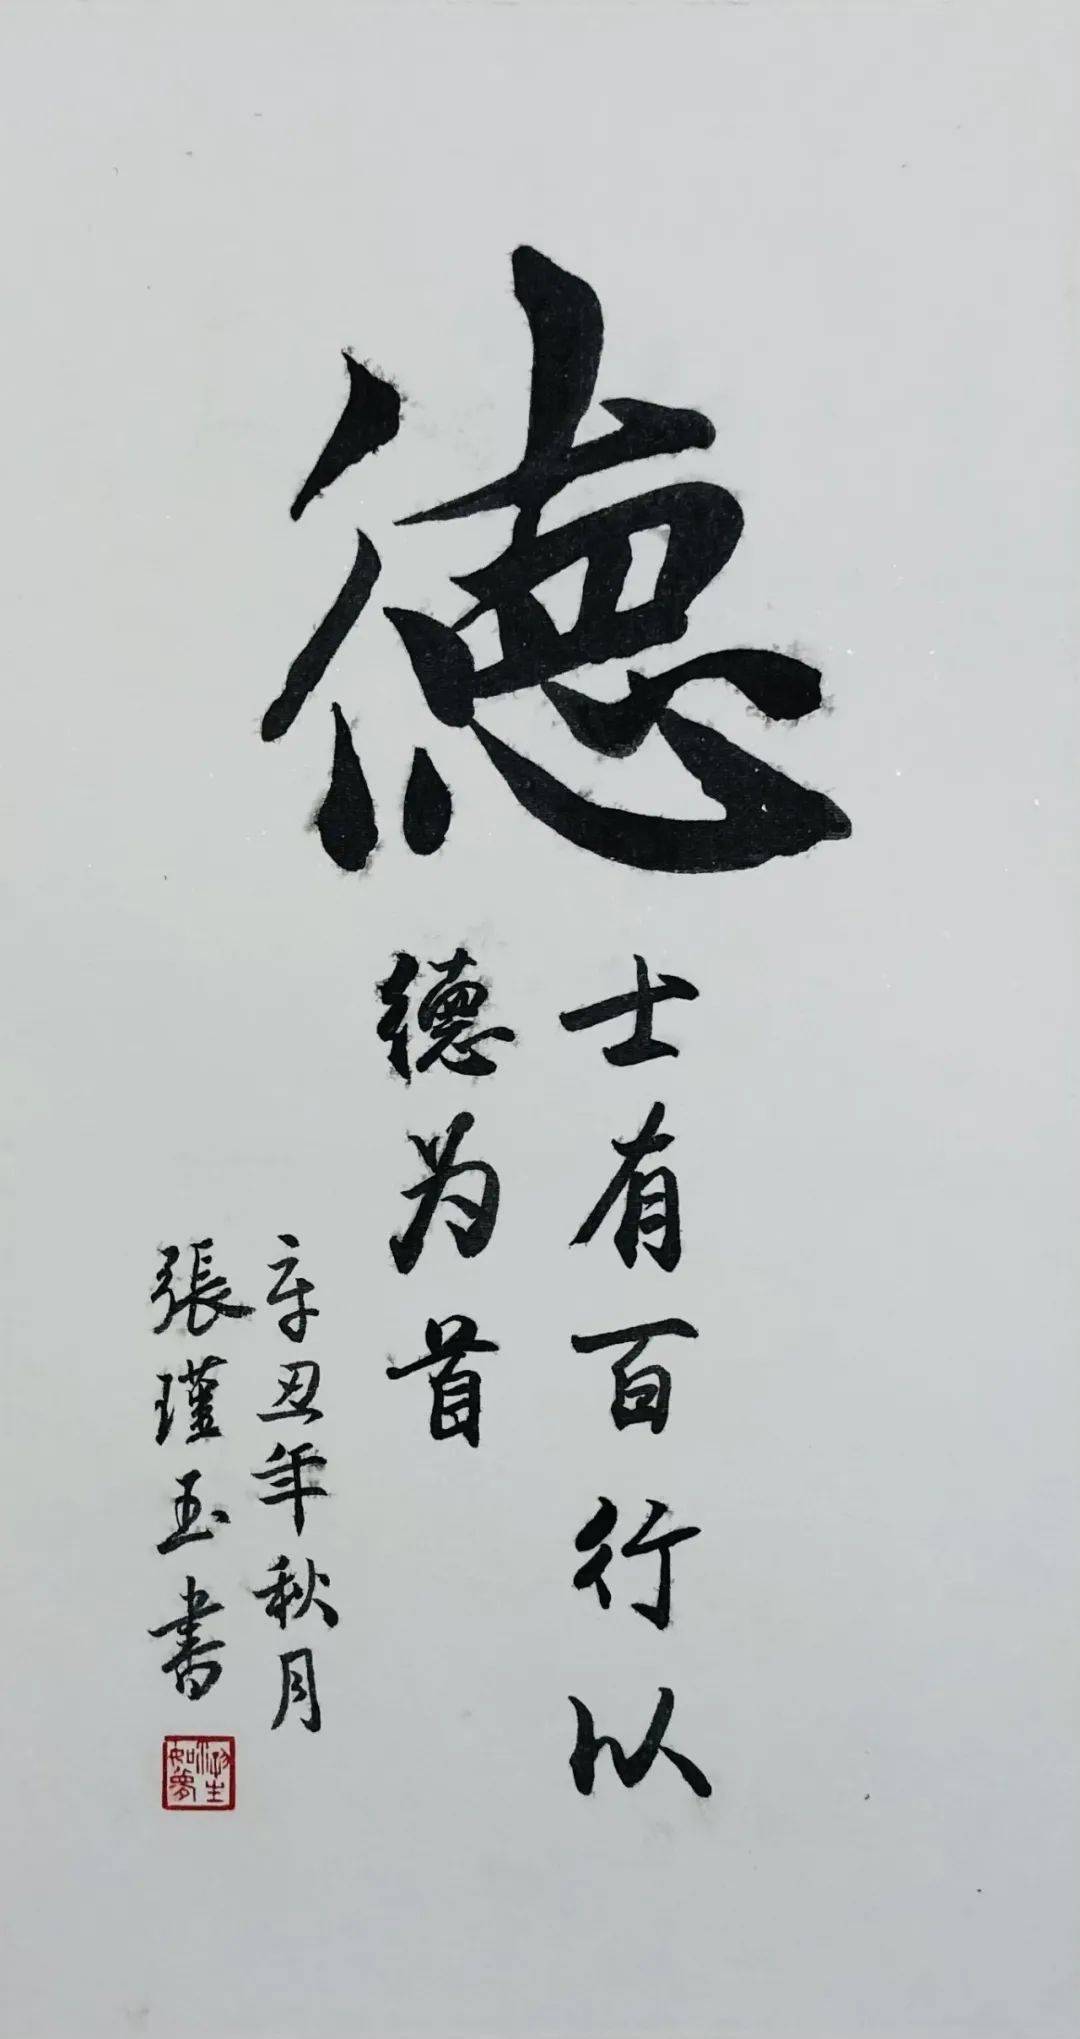 德
士有百行以
德为首
辛丑年秋月
張瑾玉書
浮生
如夢